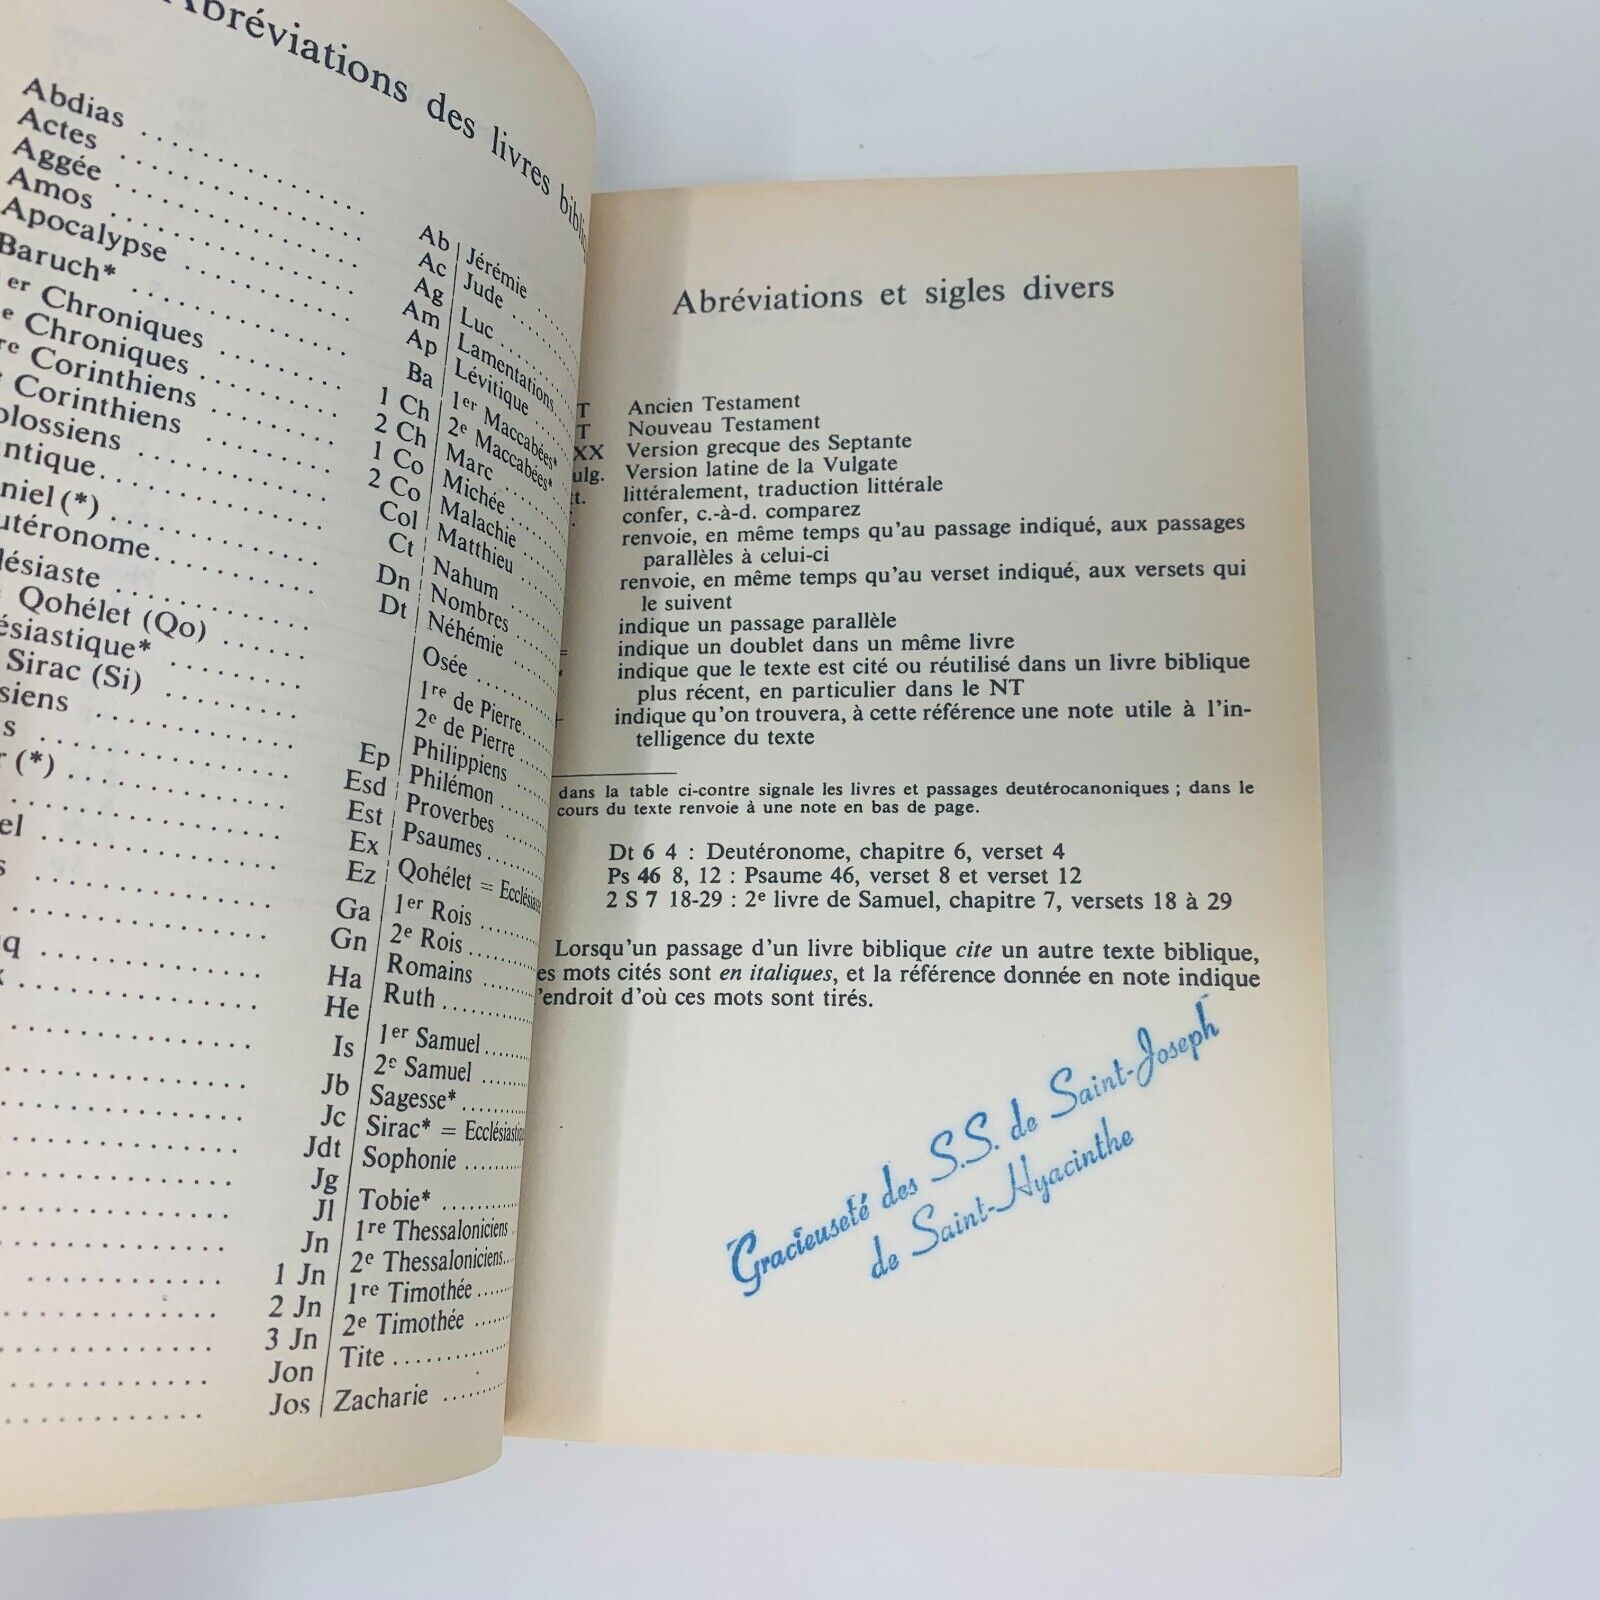 Abréviations des livres
Abdias
Actes
Aggée
Amos
Apocalypse
Baruch*
er Chroniques
e Chroniques
re Corinthiens
Corinthiens
Ab
Ac
Ag
Am
Ap
Ba
1 Ch
2 Ch
1 Co
2 Co
Col
Ct
Dn
Dt
Ep
Esd
Est
Ex
Ez
Ga
Gn
Ha
He
Is
Jb
Jc
Jdt
Jg
Jl
Jn
1 Jn
2 Jn
3 Jn
Jon
Jos
Qohélet (Qo)
Sirac (Si)
Jérémie
Jude
Luc
Lamentations
Lévitique
1er Maccabées*
2e Maccabées*
Marc
Michée
Malachie
Matthieu
Nahum
Nombres
Néhémie
Osée
1re de Pierre
2e de Pierre
Philippiens
Philémon
Proverbes
Psaumes
Qohélet = Ecclésiaste
1er Rois
2e Rois
Romains
Ruth
1er Samuel
2e Samuel
Sagesse*
Sirac* = Ecclésiastique
Sophonie
Tobie*
1re Thessaloniciens
2e Thessaloniciens
1re Timothée
2e Timothée
Tite
Zacharie
Abréviations et sigles divers
T Ancien Testament
T Nouveau Testament
XX Version grecque des Septante
ulg. Version latine de la Vulgate
t. littéralement, traduction littérale
confer, c.-à-d. comparez
renvoie, en même temps qu'au passage indiqué, aux passages
parallèles à celui-ci
renvoie, en même temps qu'au verset indiqué, aux versets qui
le suivent
indique un passage parallèle
= indique un doublet dans un même livre
indique que le texte est cité ou réutilisé dans un livre biblique
plus récent, en particulier dans le NT
indique qu'on trouvera, à cette référence une note utile à l'in-
telligence du texte
dans la table ci-contre signale les livres et passages deutérocanoniques ; dans le
cours du texte renvoie à une note en bas de page.
Dt 6 4 : Deutéronome, chapitre 6, verset 4
Ps 46 8, 12 : Psaume 46, verset 8 et verset 12
2 S 7 18-29 : 2e livre de Samuel, chapitre 7, versets 18 à 29
Lorsqu'un passage d'un livre biblique cite un autre texte biblique,
es mots cités sont en italiques, et la référence donnée en note indique
'endroit d'où ces mots sont tirés.
Gracieuseté des S.S. de Saint-Joseph
de Saint-Hyacinthe